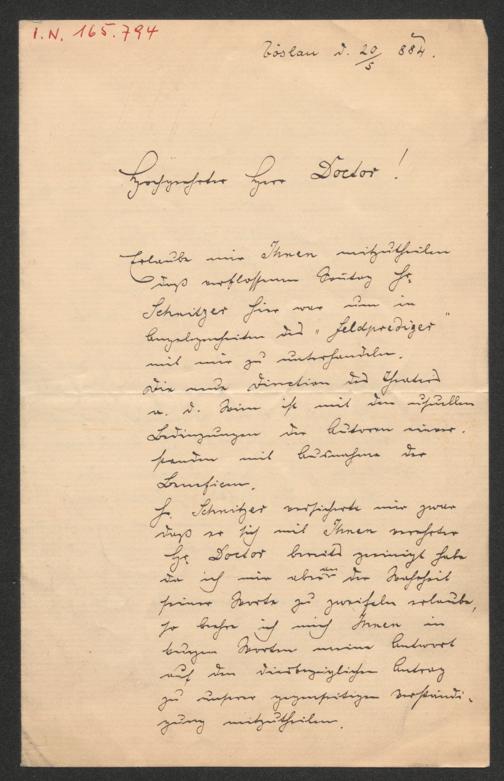 I.N. 165.794
Vöslau d. 20/5 884.
Hochgeehrter Herr Doctor!
Erlaube mir Ihnen mitzutheilen
daß verflossenen Sontag Hr.
Schnitzer hier war um in
Angelegenheiten des "Feldprediger"
mit mir zu unterhandeln.
Die neue Direction des Theaters
a. d. Wien ist mit den usuellen
Bedingungen der Autoren einver-
standen mit Ausnahme der
Beneficen.
Hr. Schnitzer versicherte mir zwar
daß er sich mit Ihnen verehrter
Hr. Doctor bereits geeinigt habe
da ich mir aber an der Wahrheit
seiner Worte zu zweifeln erlaube,
so beehre ich mich Ihnen in
kurzen Worten meine Antwort
auf den diesbezüglichen Antrag
zu unserer gegenseitigen Verständi-
gung mitzutheilen.